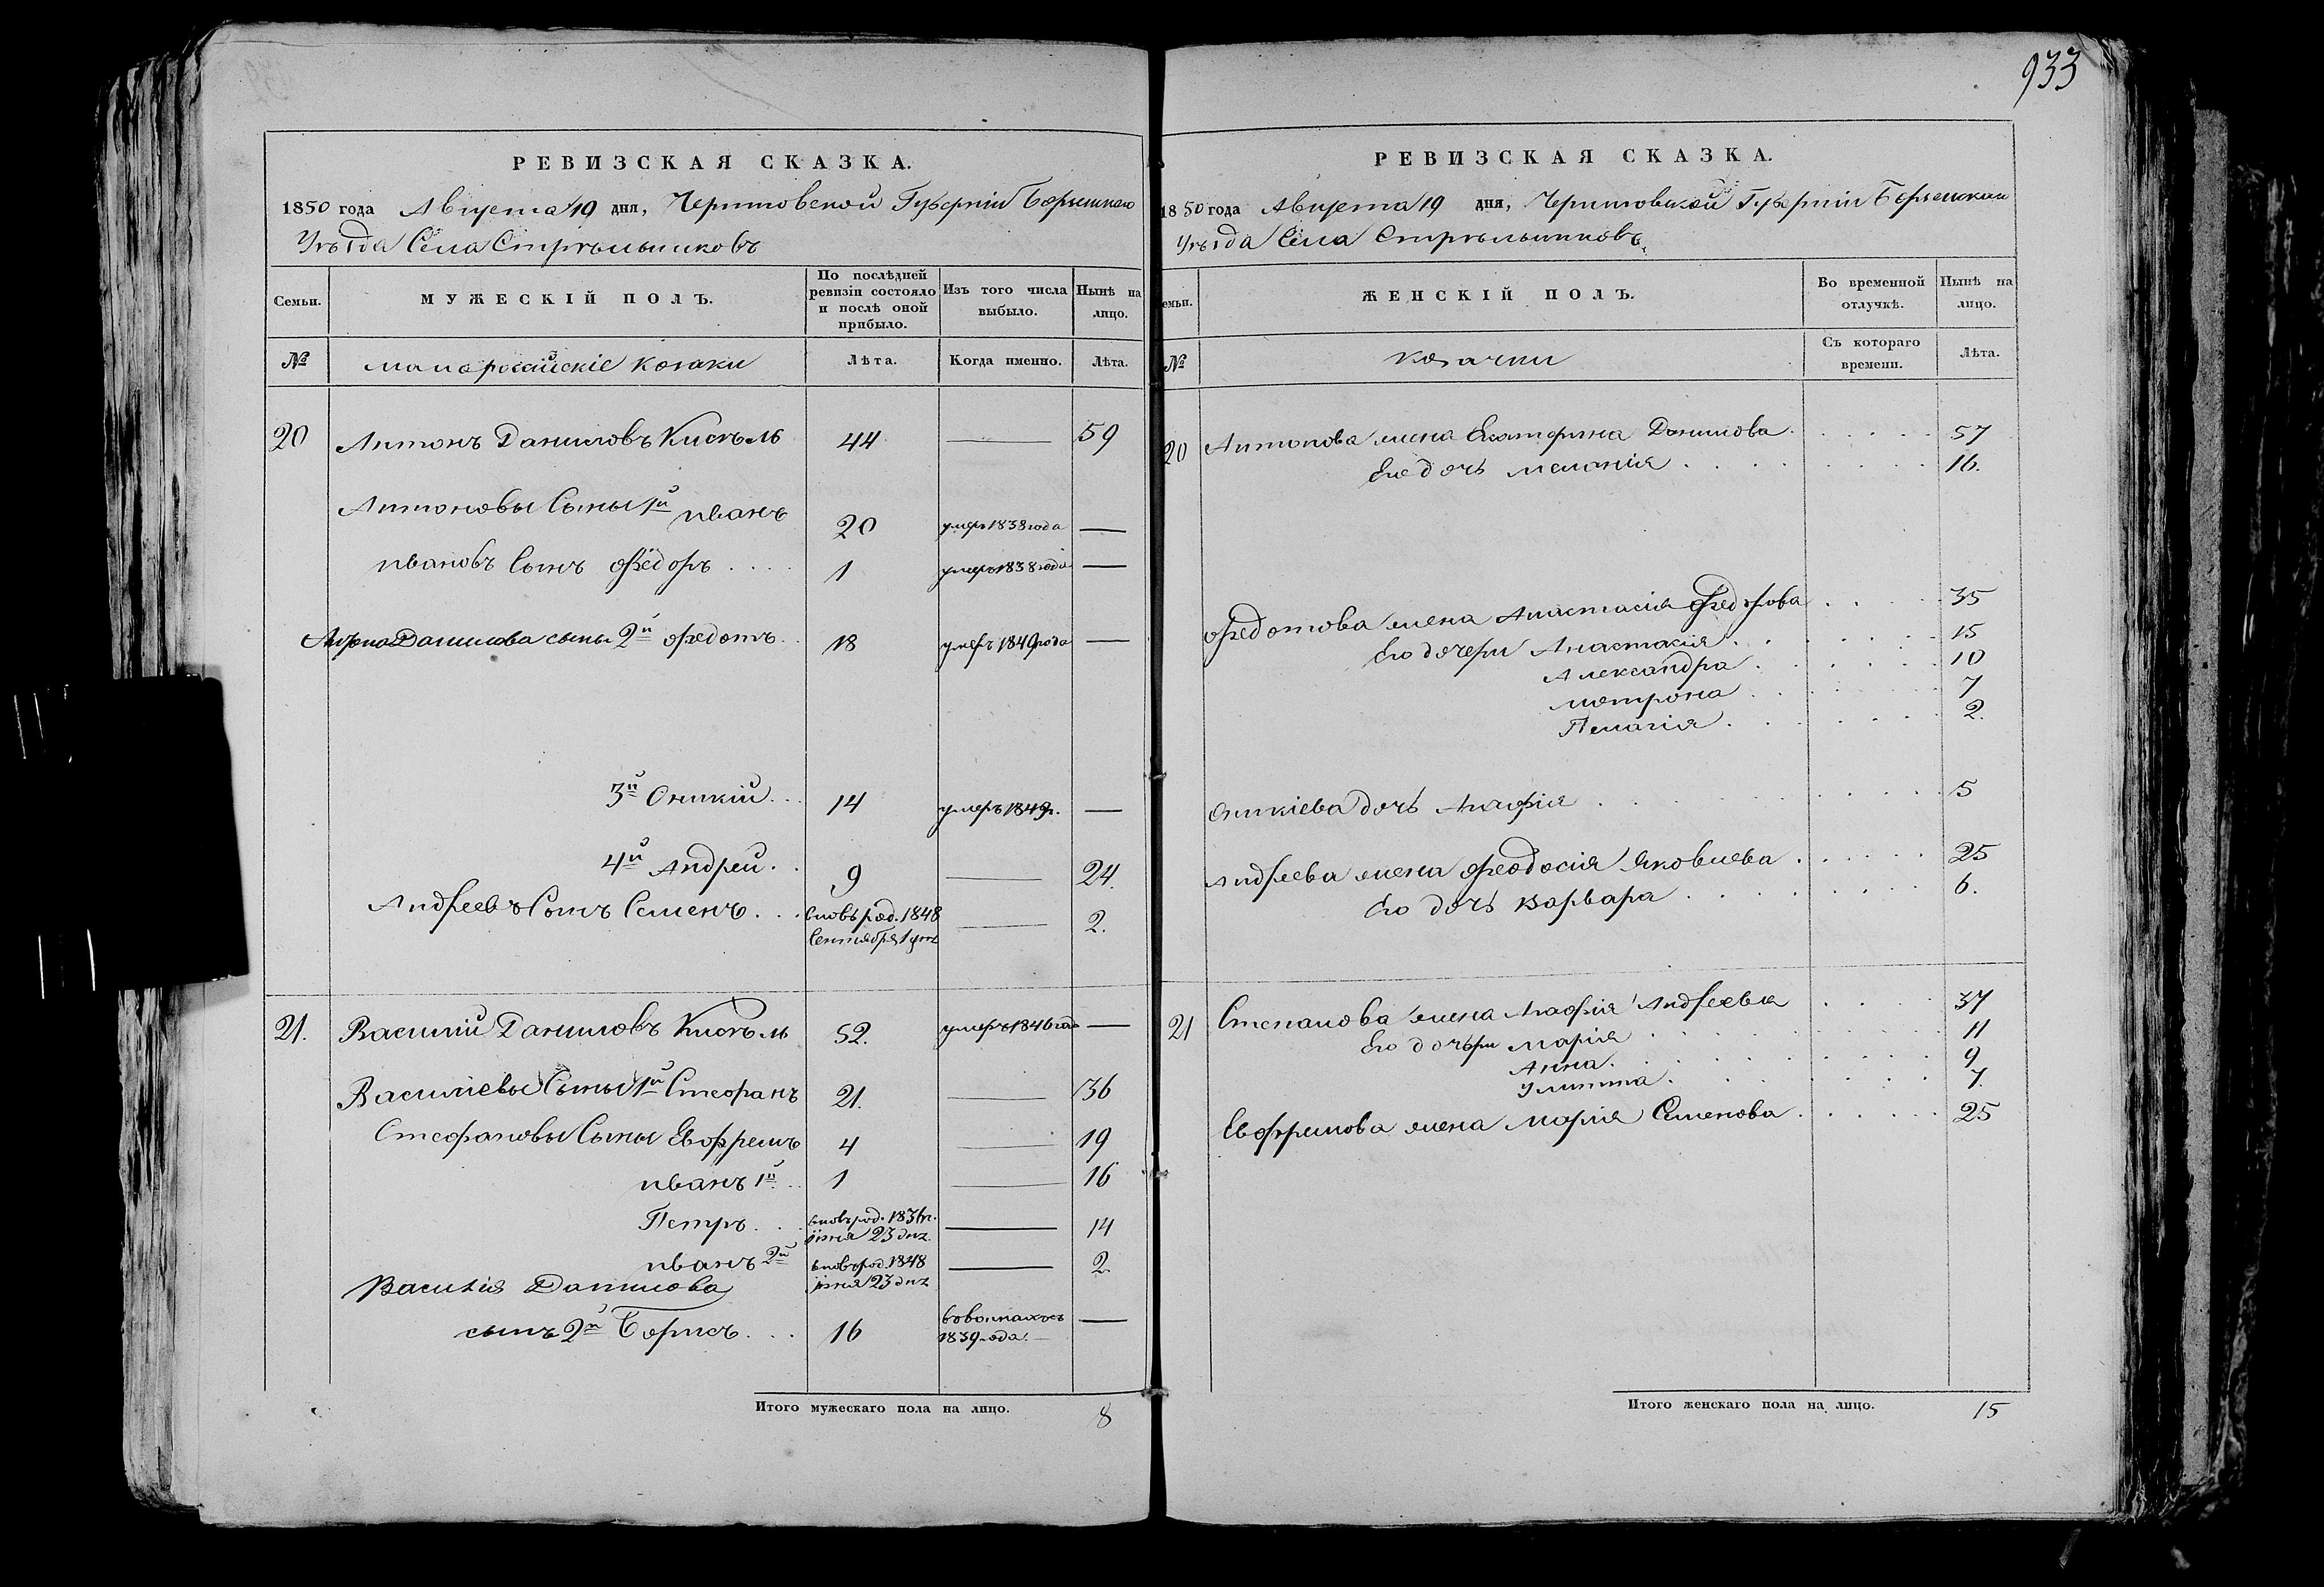 933
РЕВИЗСКАЯ СКАЗКА.
1850 года Августа 19 дня, Черниговской Губерніи Борзенскаго
Уѣзда Села Стрѣльниковъ
Семьи.
МУЖЕСКІЙ ПОЛЪ.
По послѣдней ревизіи состояло и послѣ оной прибыло.
Изъ того числа выбыло.
Нынѣ на лицо.
№
малороссійскіе козаки
Лѣта.
Когда именно.
Лѣта.
20 Антонъ Даниловъ Кисѣль 44 — 59
Антоновы Сыны 1й иванъ 20 умеръ 1838 года —
ивановъ Сынъ Ѳедоръ 1 умеръ 1838 года —
Антона Данилова сыны 2й Ѳедотъ 18 умеръ 1849 года —
3й Оникій 14 умеръ 1849 г. —
4й Андрей 9 — 24.
Андреевъ Сынъ Семенъ вновь род. 1848 — 2.
Сентября 1 дня
21. Василій Даниловъ Кисѣль 52. умеръ 1846 года —
Василіевы Сыны 1й Стефанъ 21. — 36
Стефановы Сыны Евфремъ 4 — 19
иванъ 1й 1 — 16
Петръ вновь род. 1836 г. — 14
іюня 23 дня
иванъ 2й вновь род. 1848 — 2
іюня 23 дня
Василія Данилова
сынъ 2й Борисъ 16 —
1839 года.
Итого мужескаго пола на лицо. 8
РЕВИЗСКАЯ СКАЗКА.
1850 года Августа 19 дня, Черниговской Губерніи Борзенскаго
Уѣзда Села Стрѣльниковъ
емьи.
ЖЕНСКІЙ ПОЛЪ.
Во временной отлучкѣ.
Нынѣ на лицо.
№
козачки
Съ котораго времени.
Лѣта.
20 Антонова жена Екатерина Данилова 57
Его дочь меланія 16.
Ѳедотова жена Анастасія Ѳедорова 35
Его дочери Анастасія 15
Александра 10
мотрона 7
Пелагія 2.
Оникіева дочь Агафія 5
Андреева жена Ѳеодосія Яковлева 25
Его дочь варвара 6.
21 Степанова жена Агафія Андреевна 37
Его дочери марія 11
Анна 9
Улиана 7.
Евфремова жена марія Семенова 25
Итого женскаго пола на лицо. 15